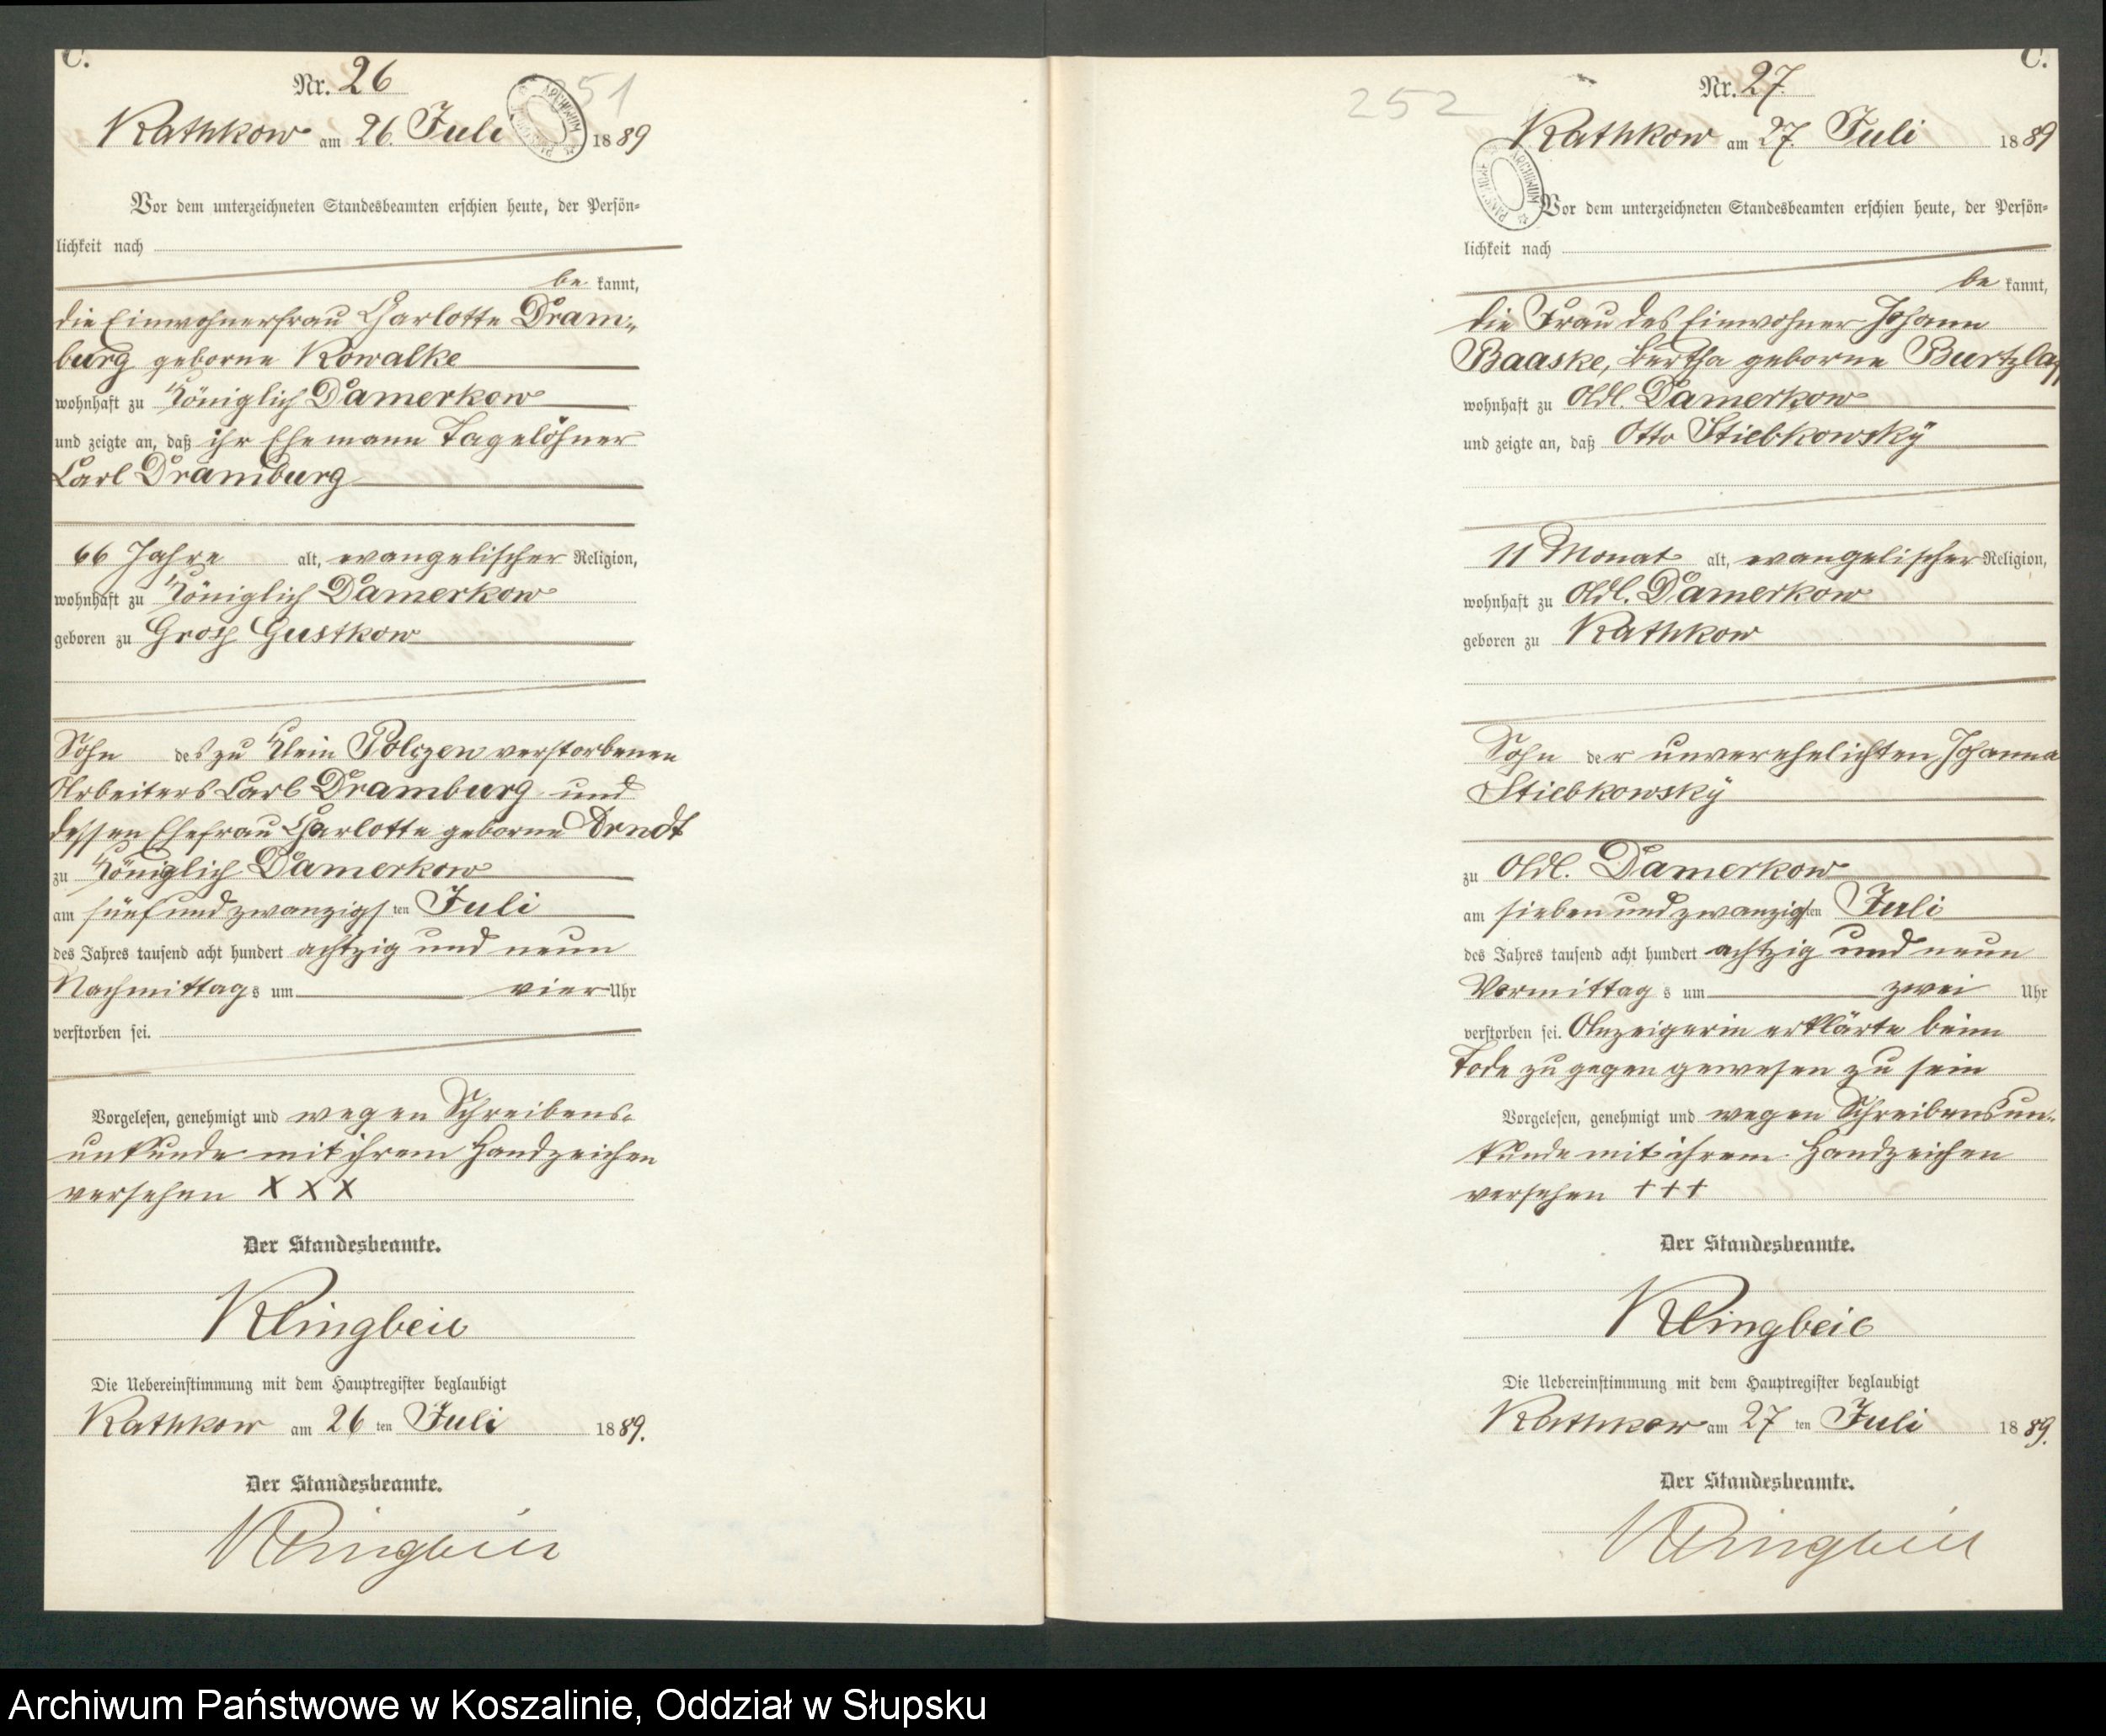 C.
Nr. 26
251
Kathkow am 26. Juli 1889
ARCHIWUM
Vor dem unterzeichneten Standesbeamten erschien heute, der Persön-
lichkeit nach
be kannt,
die Einwohnerfrau Charlotte Dram-
burg geborne Kowalke
wohnhaft zu Königlich Damerkow
und zeigte an, daß ihr Ehemann Tagelöhner
Carl Dramburg
66 Jahre alt, evangelischer Religion,
wohnhaft zu Königlich Damerkow
geboren zu Groß Gustkow
Sohn des zu Klein Polczen verstorbenen
Arbeiters Carl Dramburg und
dessen Ehefrau Charlotte geborne Arndt
zu Königlich Damerkow
am fünfundzwanzigsten Juli
des Jahres tausend acht hundert achtzig und neun
Nachmittags um vier Uhr
verstorben sei.
Vorgelesen, genehmigt und wegen Schreibens-
unkunde mit ihrem Handzeichen
versehen X X X
Der Standesbeamte.
Klingbeil
Die Uebereinstimmung mit dem Hauptregister beglaubigt
Kathkow am 26 ten Juli 1889.
Der Standesbeamte.
Klingbeil
C.
Nr. 27.
252
Kathkow am 27. Juli 1889
ARCHIWUM
Vor dem unterzeichneten Standesbeamten erschien heute, der Persön-
lichkeit nach
be kannt,
die Frau des Einwohner Johann
Baaske, Bertha geborne Burtzlaff
wohnhaft zu Adl. Damerkow
und zeigte an, daß Otto Stiebkowsky
11 Monat alt, evangelischer Religion,
wohnhaft zu Adl. Damerkow
geboren zu Kathkow
Sohn der unverehelichten Johanna
Stiebkowsky
zu Adl. Damerkow
am siebenundzwanzigsten Juli
des Jahres tausend acht hundert achtzig und neun
Vormittags um zwei Uhr
verstorben sei. Anzeigerin erklärte beim
Tode zugegen gewesen zu sein
Vorgelesen, genehmigt und wegen Schreibensun-
kunde mit ihrem Handzeichen
versehen +++
Der Standesbeamte.
Klingbeil
Die Uebereinstimmung mit dem Hauptregister beglaubigt
Kathkow am 27 ten Juli 1889.
Der Standesbeamte.
Klingbeil
Archiwum Państwowe w Koszalinie, Oddział w Słupsku